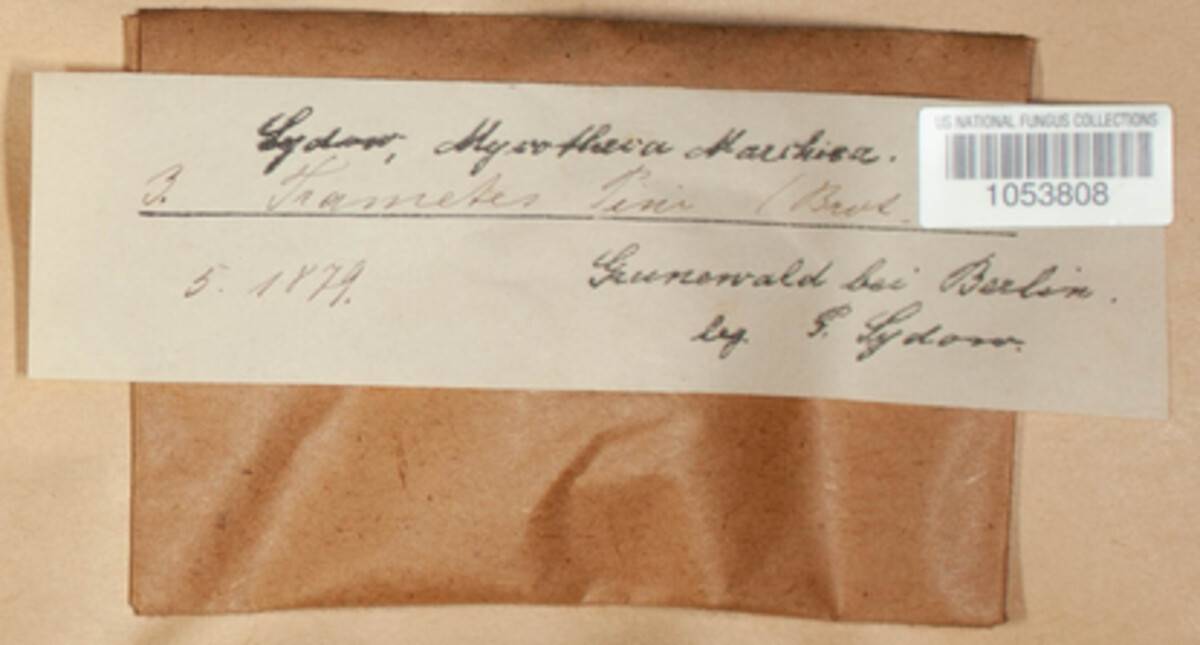 Sydow, Mycotheca Marchica.
3. Trametes Pini (Brot.
5. 1879.
Grunewald bei Berlin.
leg. P. Sydow.
US NATIONAL FUNGUS COLLECTIONS
1053808